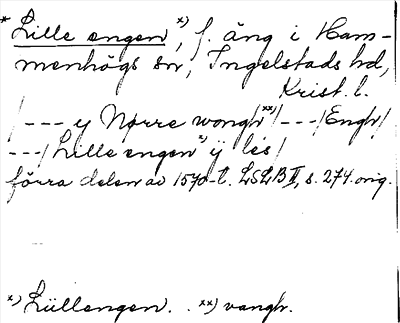 * Lille engen x), f. äng i Ham-
menhögs sn, Ingelstads hd,
Krist. l.
/--- y Nørre wongh xx)/---/Engh/
---/ Lille engen x) ÿ lés/
förra delen av 1570-t. LSLB II, s. 274. orig.
x) Lüllengen. . xx) vangh.